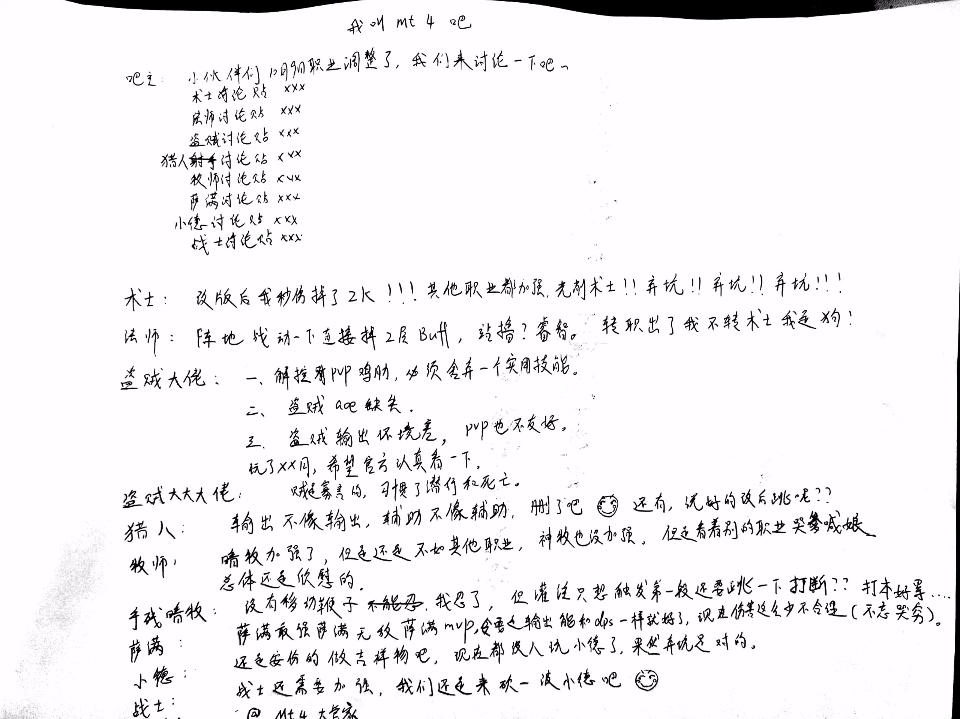 我叫mt4吧
吧主: 小伙伴们10月9日职业调整了,我们来讨论一下吧~
术士讨论贴 xxx
法师讨论贴 xxx
盗贼讨论贴 xxx
猎人讨论贴 xxx
牧师讨论贴 xxx
萨满讨论贴 xxx
小德讨论贴 xxx
战士讨论贴 xxx
术士: 改版后我秒伤掉了2K!!!其他职业都加强,克制术士!!弃坑!!弃坑!!弃坑!!!
法师: 阵地战动一下直接掉2层Buff,站撸?睿智。 转职出了我不转术士我是狗!
盗贼大佬: 一、解控有pvp鸡肋,必须舍弃一个实用技能。
二、盗贼aoe缺失.
三、盗贼输出环境差,pvp也不友好。
玩了xx月,希望官方认真看一下。
盗贼大大大佬: 贼是寡言的,习惯了潜行和死亡。
猎人: 输出不像输出,辅助不像辅助,删了吧 还有,说好的改后跳呢??
牧师: 暗牧加强了,但是还是不如其他职业,神牧也没加强,但是看着别的职业哭爹喊娘
总体还是欣慰的.
手残暗牧: 没有移动鞭子 我忍了,但灌注只想触发第一段还要跳一下打断??打本好累....
萨满: 萨满最强萨满无敌萨满mvp,要是输出能和dps一样就好了,现在伤害这么少不合理(不忘哭穷)。
小德: 还是安份的做吉祥物吧,现在都没人玩小德了,果然弃坑是对的。
战士: 战士还需要加强,我们还是来砍一波小德吧
@ mt4大管家